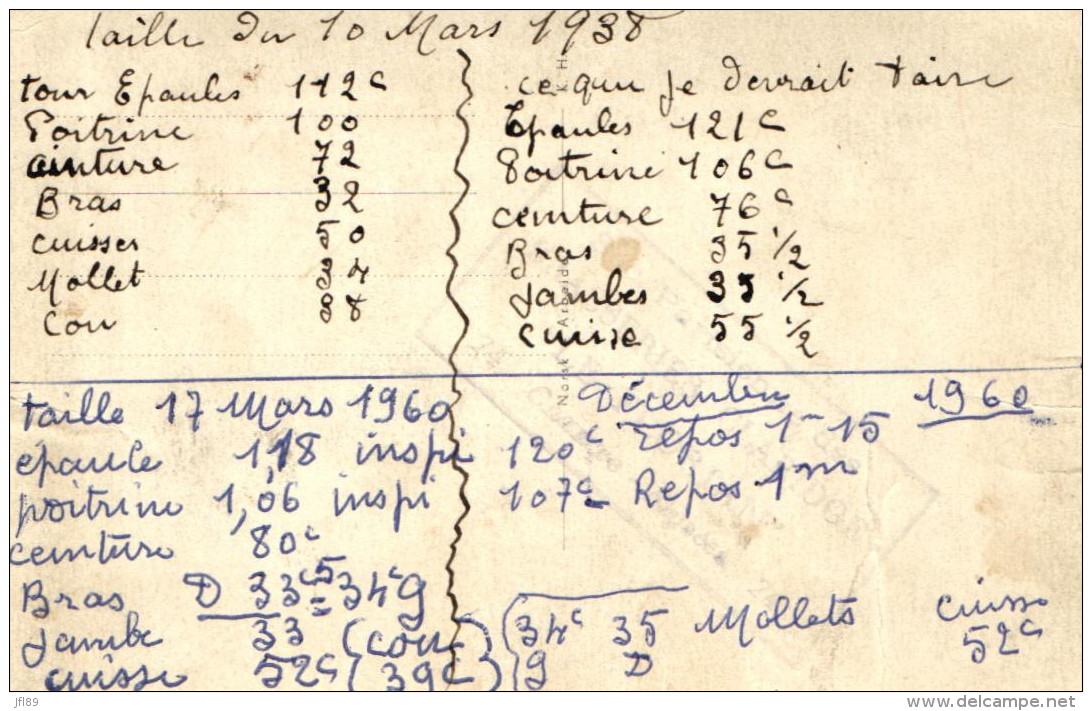 Taille du 10 Mars 1938
tour Epaules 112c
Poitrine 100
ceinture 72
Bras 32
cuisses 50
Mollet 34
Cou 38
ce que je devrait faire
Epaules 121c
Poitrine 106c
ceinture 76c
Bras 35 1/2
Jambes 35 1/2
cuisse 55 1/2
taille 17 Mars 1960
epaule 1,18 inspi
poitrine 1,06 inspi
ceinture 80c
Bras D 33c5 = 34c g
Jambe 33 (cou
cuisse 52c (39c)
Décembre 1960
120c repos 1m 15
107c Repos 1m
34c 35 Mollets
g D
cuisse
52c
Norsk Arbejde
jfl89
www.delcampe.net